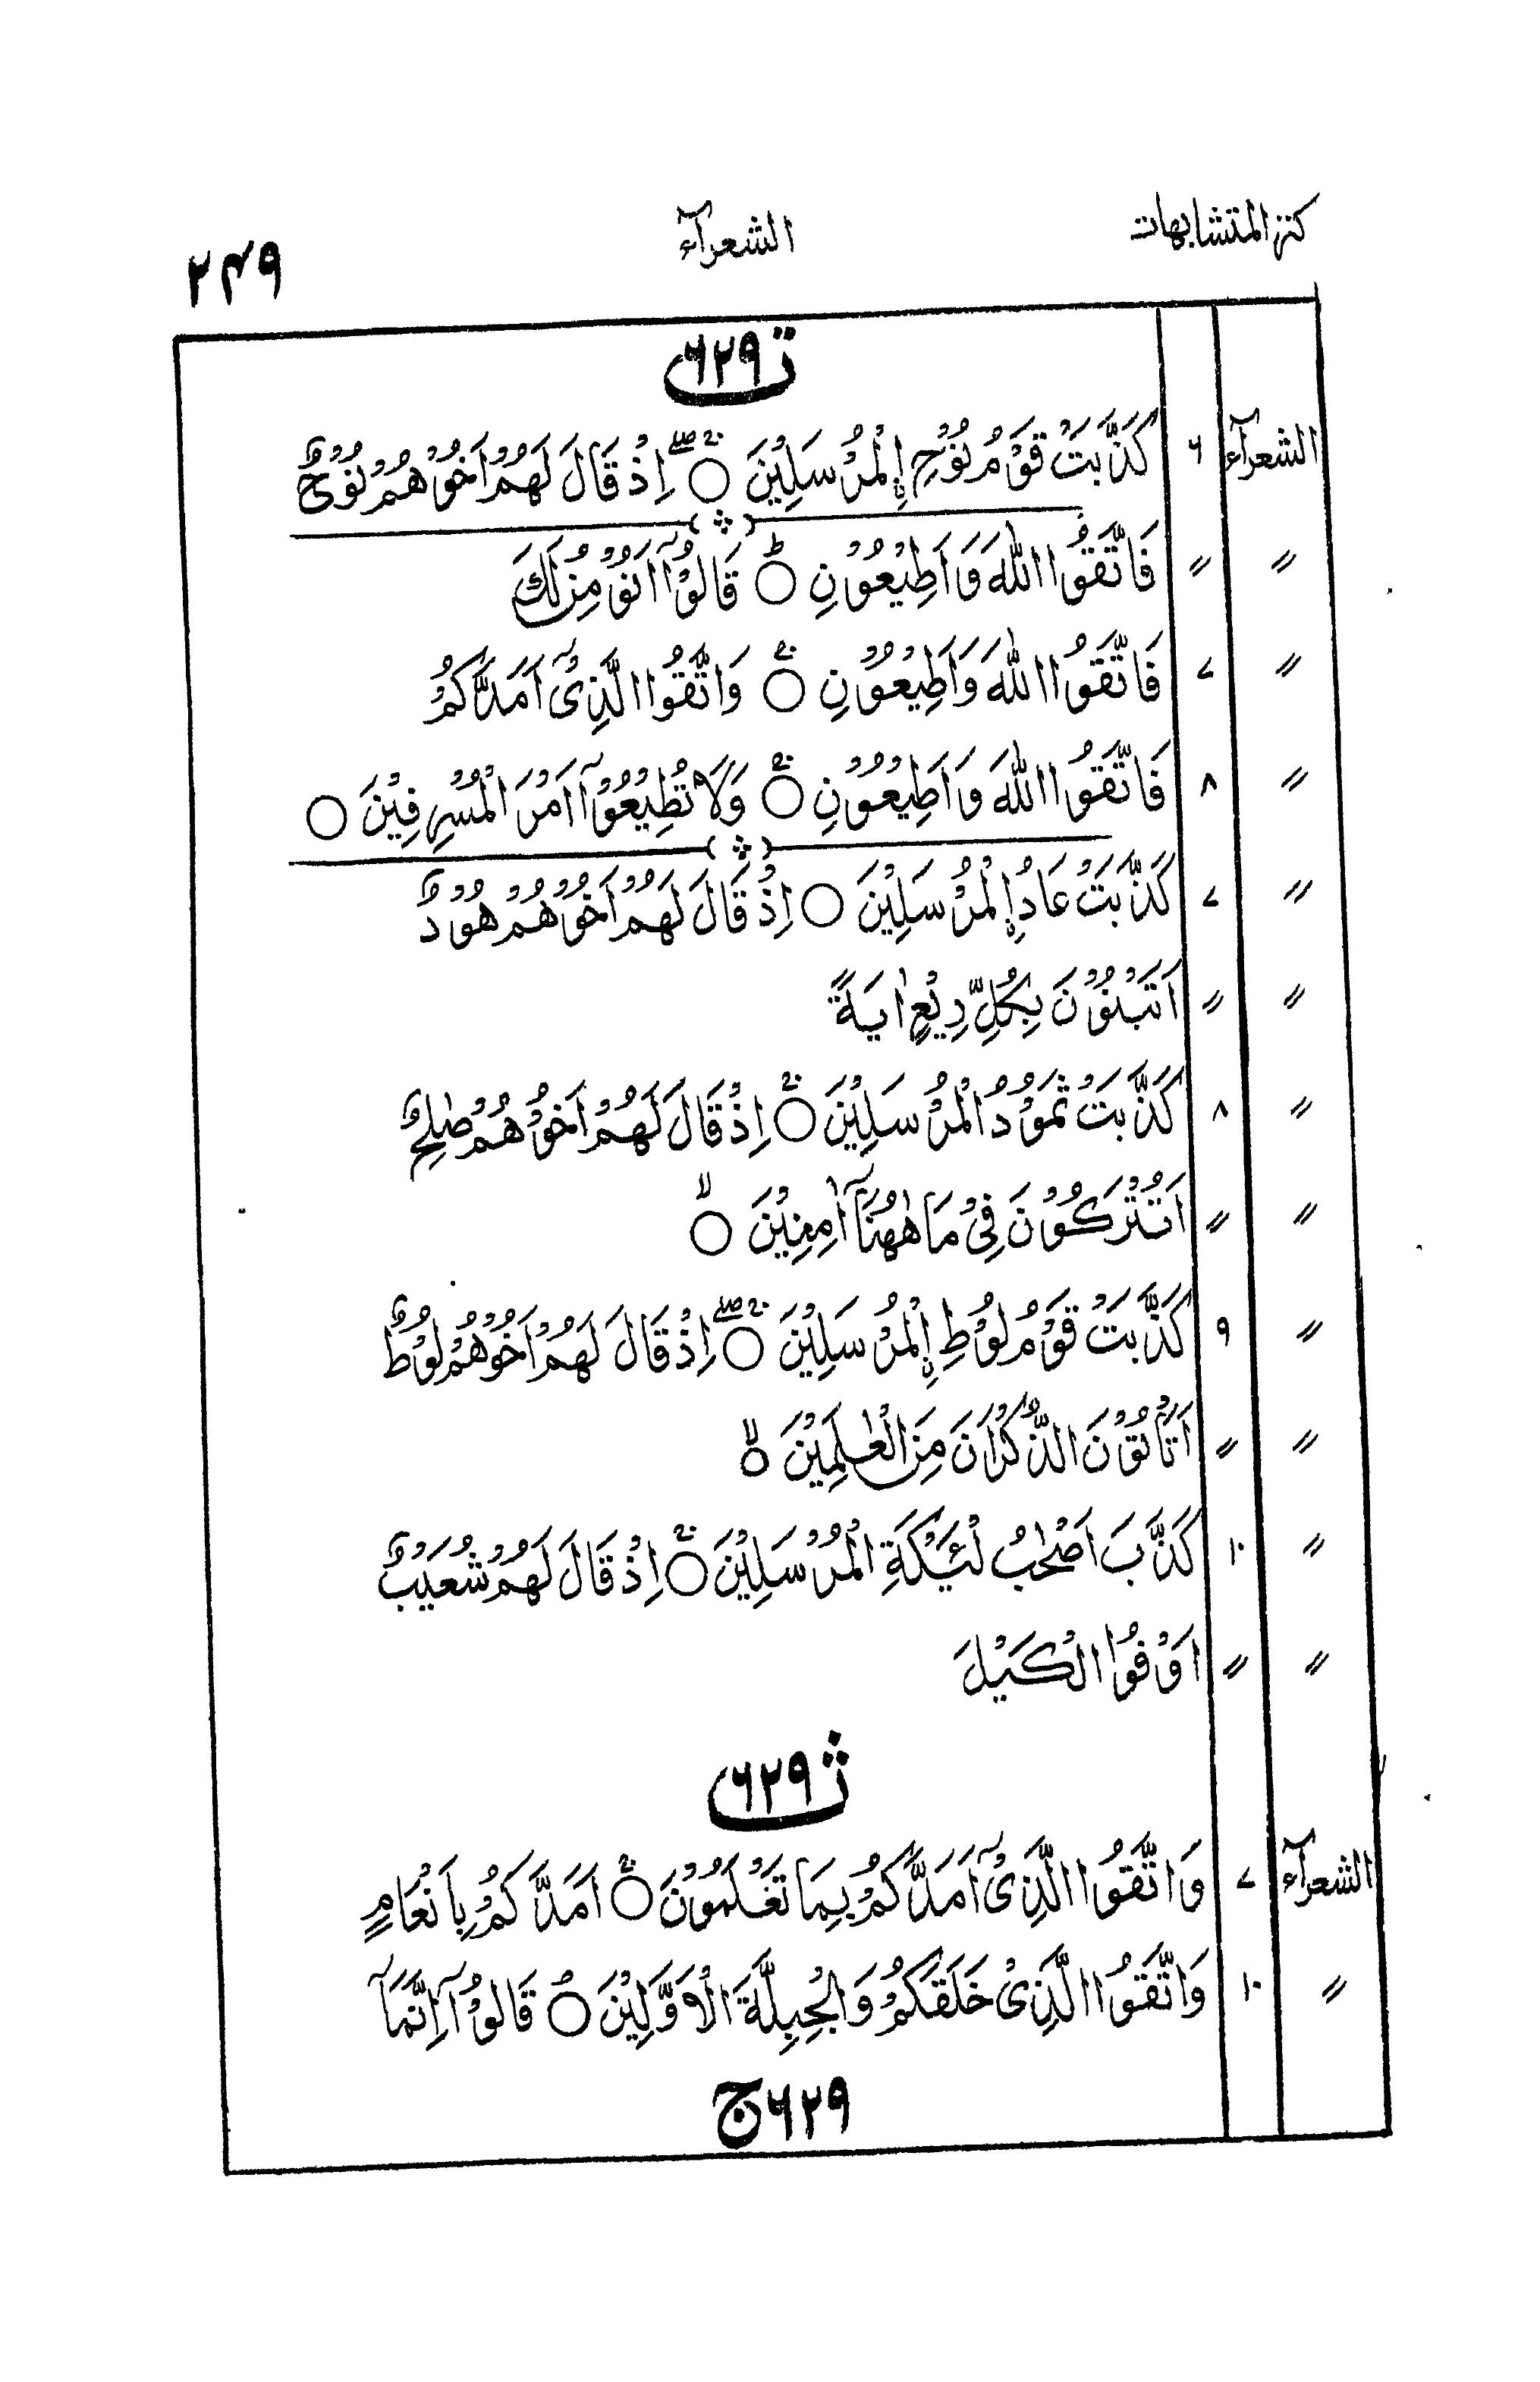 كنز المتشابهات الشعرآء ۲۴۹
ت ۶۲۹
الشعرآء ۶ كَذَّبَتْ قَوْمُ نُوْحِ ۨالْمُرْسَلِيْنَ ○ اِذْ قَالَ لَهُمْ اَخُوْهُمْ نُوْحٌ
〃 〃 فَاتَّقُوا اللّٰهَ وَاَطِيْعُوْنِ ○ قَالُوْٓا اَنُؤْمِنُ لَكَ
〃 ۷ فَاتَّقُوا اللّٰهَ وَاَطِيْعُوْنِ ○ وَاتَّقُوا الَّذِيْٓ اَمَدَّكُمْ
〃 ۸ فَاتَّقُوا اللّٰهَ وَاَطِيْعُوْنِ ○ وَلَا تُطِيْعُوْٓا اَمْرَ الْمُسْرِفِيْنَ ○
〃 ۷ كَذَّبَتْ عَادُ ۨالْمُرْسَلِيْنَ ○ اِذْ قَالَ لَهُمْ اَخُوْهُمْ هُوْدٌ
〃 〃 اَتَبْنُوْنَ بِكُلِّ رِيْعٍ اٰيَةً
〃 ۸ كَذَّبَتْ ثَمُوْدُ الْمُرْسَلِيْنَ ○ اِذْ قَالَ لَهُمْ اَخُوْهُمْ صٰلِحٌ
〃 〃 اَتُتْرَكُوْنَ فِيْ مَا هٰهُنَآ اٰمِنِيْنَ ○
〃 ۹ كَذَّبَتْ قَوْمُ لُوْطِ ۨالْمُرْسَلِيْنَ ○ اِذْ قَالَ لَهُمْ اَخُوْهُمْ لُوْطٌ
〃 〃 اَتَاْتُوْنَ الذُّكْرَانَ مِنَ الْعٰلَمِيْنَ ○
〃 ۱۰ كَذَّبَ اَصْحٰبُ لْـَٔيْكَةِ الْمُرْسَلِيْنَ ○ اِذْ قَالَ لَهُمْ شُعَيْبٌ
〃 〃 اَوْفُوا الْكَيْلَ
ث ۶۲۹
الشعرآء ۷ وَاتَّقُوا الَّذِيْٓ اَمَدَّكُمْ بِمَا تَعْلَمُوْنَ ○ اَمَدَّكُمْ بِاَنْعَامٍ
〃 ۱۰ وَاتَّقُوا الَّذِيْ خَلَقَكُمْ وَالْجِبِلَّةَ الْاَوَّلِيْنَ ○ قَالُوْٓا اِنَّمَآ
۶۲۹ ج